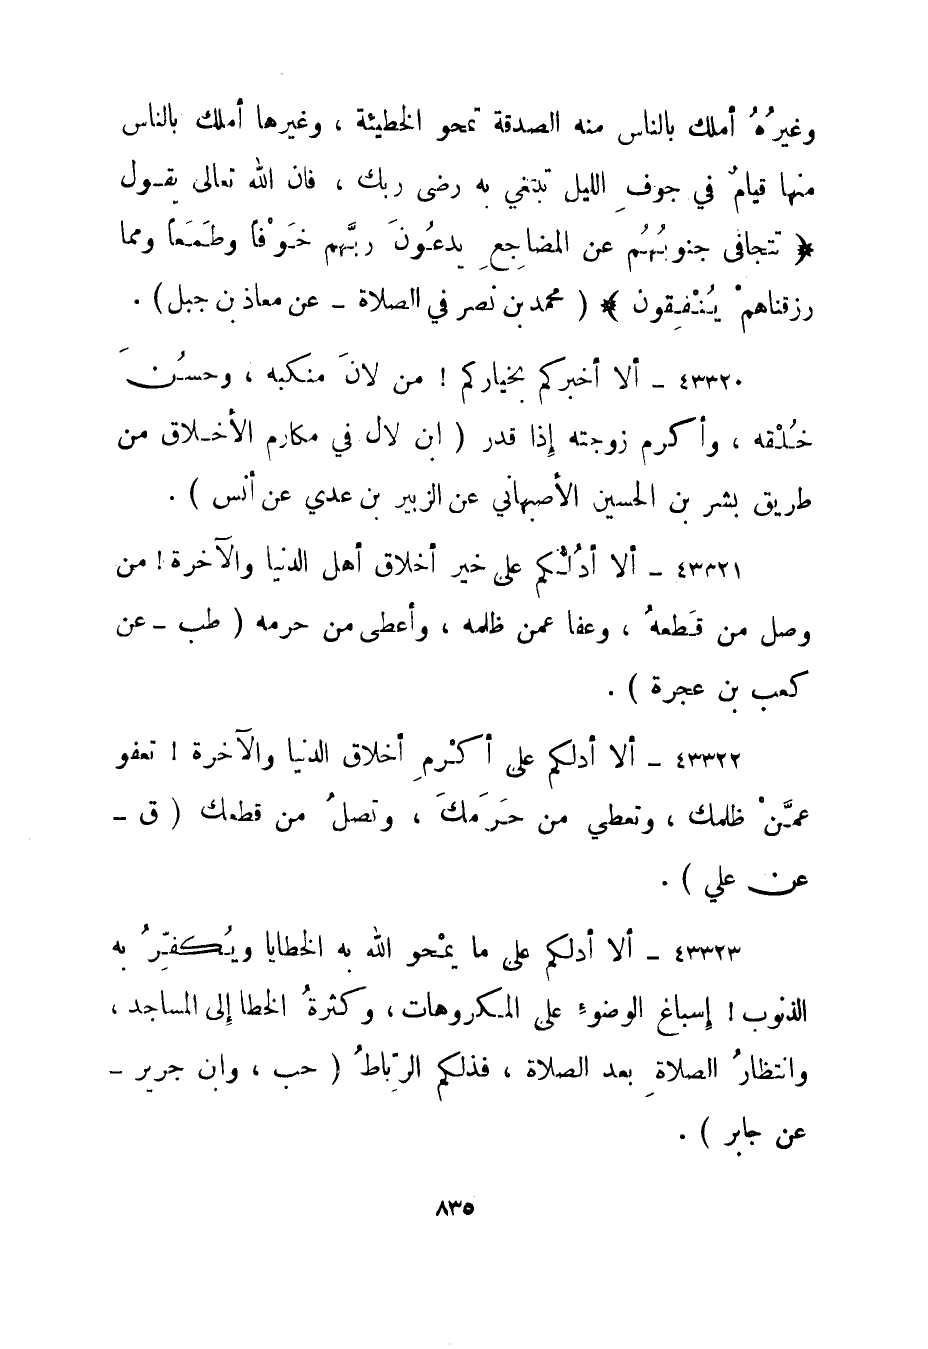 وغيرُهُ أملك بالناس منه الصدقة تمحو الخطيئة ، وغيرها أملك بالناس
منها قيامٌ في جوفِ الليل تبتغي به رضى ربك ، فان الله تعالى يقول
﴿ تتجافى جنوبُهُم عن المضاجعِ يدعُونَ ربَّهم خَوْفاً وطَمَعاً ومما
رزقناهمْ يُنْفِقون ﴾ ( محمد بن نصر في الصلاة - عن معاذ بن جبل ) .
٤٣٣٢٠ - ألا أخبركم بخياركم ! من لانَ منكبه ، وحسُنَ
خُلْقه ، وأكرم زوجته إذا قدر ( ابن لال في مكارم الأخلاق من
طريق بشر بن الحسين الأصبهاني عن الزبير بن عدي عن أنس ) .
٤٣٣٢١ - ألا أدُلُّكم على خير أخلاق أهل الدنيا والآخرة ! من
وصل من قَطعهُ ، وعفا عمن ظلمه ، وأعطى من حرمه ( طب - عن
كعب بن عجرة ) .
٤٣٣٢٢ - ألا أدلكم على أكْرمِ أخلاق الدنيا والآخرة ! تعفو
عمَّنْ ظلمك ، وتعطي من حَرَمكَ ، وتصلُ من قطعك ( ق -
عن علي ) .
٤٣٣٢٣ - ألا أدلكم على ما يمْحو الله به الخطايا ويُكفِّرُ به
الذنوب ! إسباغ الوضوء على المكروهات ، وكثرةُ الخطا إلى المساجد ،
وانتظارُ الصلاةِ بعد الصلاة ، فذلكم الرِّباطُ ( حب ، وابن جرير -
عن جابر ) .
٨٣٥